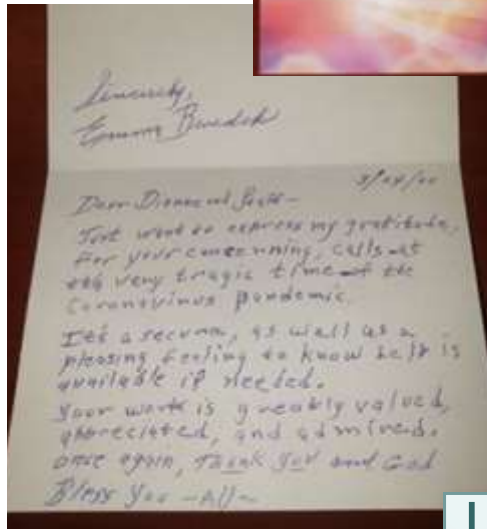 Sincerely,
Emma
Dear Dianne and
Just want to express my gratitude,
For your concerning, calls at
this very tragic time of the
Coronavirus pandemic.
It's a secure, as well as a
pleasing feeling to know help is
available if needed.
Your work is greatly valued,
appreciated, and admired.
Once again, Thank You and God
Bless You -All-